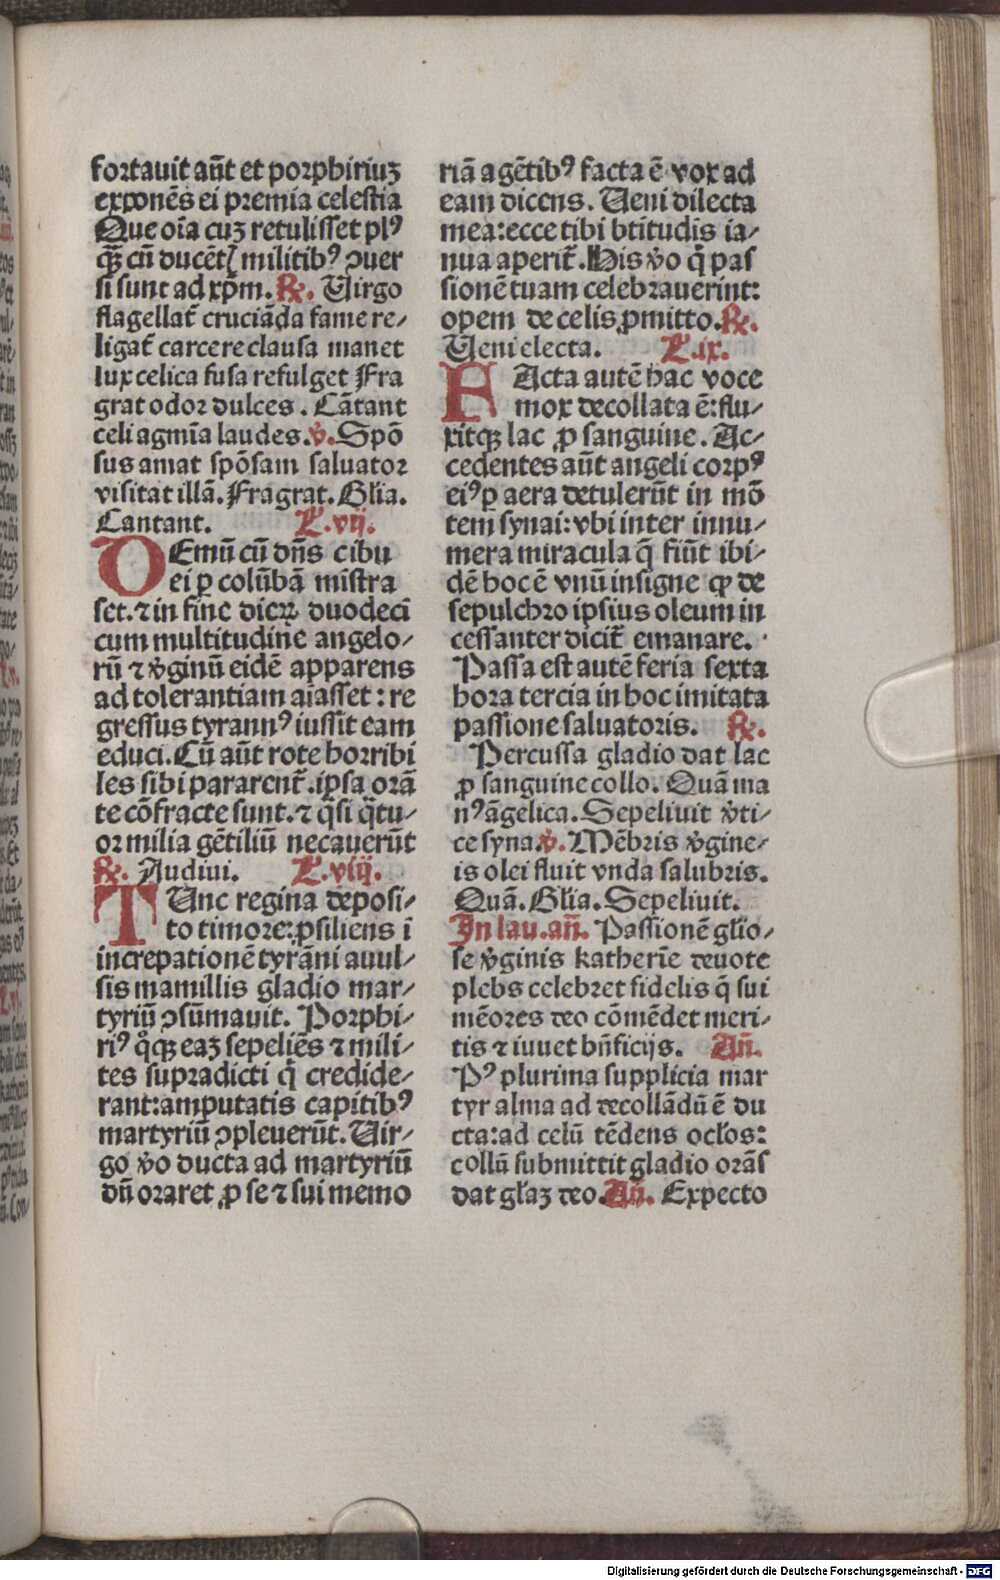 fortauit aūt et porphiriuꝫ
exponēs ei premia celestia
Que oīa cuꝫ retulisset plꝰ
qꝫ̄ cū ducētꝭ militibꝰ ↄuer
si sunt ad xp̄m. ℞. Uirgo
flagellat᷑ cruciāda fame re⸗
ligat᷑ carcere clausa manet
lux celica fusa refulget Fra
grat odor dulces . Cātant
celi agmīa laudes. ℣. Spō
sus amat spōsam saluator
visitat illā. Fragrat. Glīa.
Cantant. L.vij.
DEmū cū dn̄s cibū
ei ꝑ colūbā mīstra
set. ⁊ in fine dieꝝ duodecī
cum multitudine angelo⸗
rū ⁊ v̓ginū eidē apparens
ad tolerantiam aīasset : re
gressus tyrannꝰ iussit eam
educi. Cū aūt rote horribi
les sibi pararent᷑ .ipsa orā
te cōfracte sunt. ⁊ q̄si q̄tu⸗
or milia gētiliū necauerūt
℞. Audiui. L.viij.
TUnc regina deposi⸗
to timore: ꝓsiliens ī
increpationē tyrāni auul⸗
sis mamillis gladio mar⸗
tyriū ↄsūmauit. Porphi⸗
riꝰ qͦqꝫ eaꝫ sepeliēs ⁊ mili⸗
tes supradicti q̄ credide⸗
rant: amputatis capitibꝰ
martyriū ↄpleuerūt. Uir⸗
go v̓o ducta ad martyriū
dū oraret ꝓ se ⁊ sui memo
riā agētibꝰ facta ē vox ad
eam dicens. Ueni dilecta
mea: ecce tibi btītudīs ia⸗
nua aperit᷑. His v̓o q̄ pas
sionē tuam celebrauerint:
opem de celis ꝓmitto. ℞.
Ueni electa. L.ix.
FActa autē hac voce
mox decollata ē: flu⸗
xitqꝫ lac ꝓ sanguine. Ac⸗
cedentes aūt angeli corpꝰ
eiꝰ ꝑ aera detulerūt in mō
tem synai: vbi inter innu⸗
mera miracula q̄ fiūt ibi⸗
dē hoc ē vnū insigne ꝙ de
sepulchro ipsius oleum in
cessanter dicit᷑ emanare.
Passa est autē feria sexta
hora tercia in hoc imitata
passione saluatoris. ℞.
Percussa gladio dat lac
ꝓ sanguine collo. Quā ma
nꝰ āgelica. Sepeliuit v̓ti⸗
ce syna. ℣. Mēbris v̓gine⸗
is olei fluit vnda salubris.
Quā. Glīa. Sepeliuit.
In lau. an̄. Passionē glīo⸗
se v̓ginis katherīe deuote
plebs celebret fidelis q̄ sui
mēores deo cōmēdet meri⸗
tis ⁊ iuuet bn̄ficijs. An̄.
Pꝰ plurima supplicia mar
tyr alma ad decollādū ē du
cta: ad celū tēdens oclos:
collū submittit gladio orās
dat glaꝫ deo. An̄. Expecto
Digitalisierung gefördert durch die Deutsche Forschungsgemeinschaft - DFG